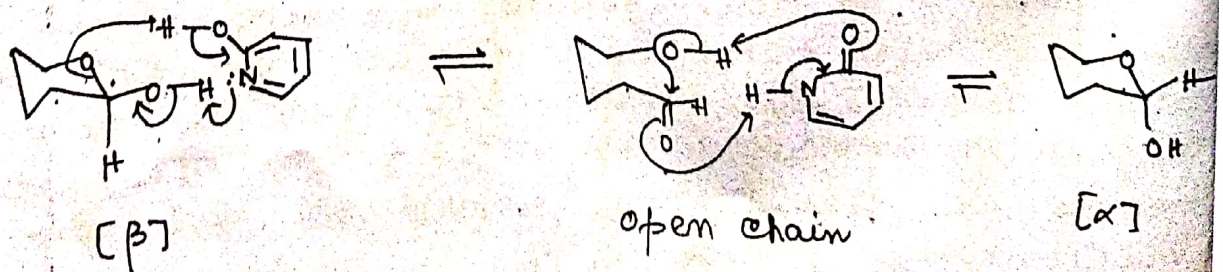 H O
O
O H :N
H
[β]
⇌
O H
H
H N
O
O
open chain
⇌
O
H
OH
[α]